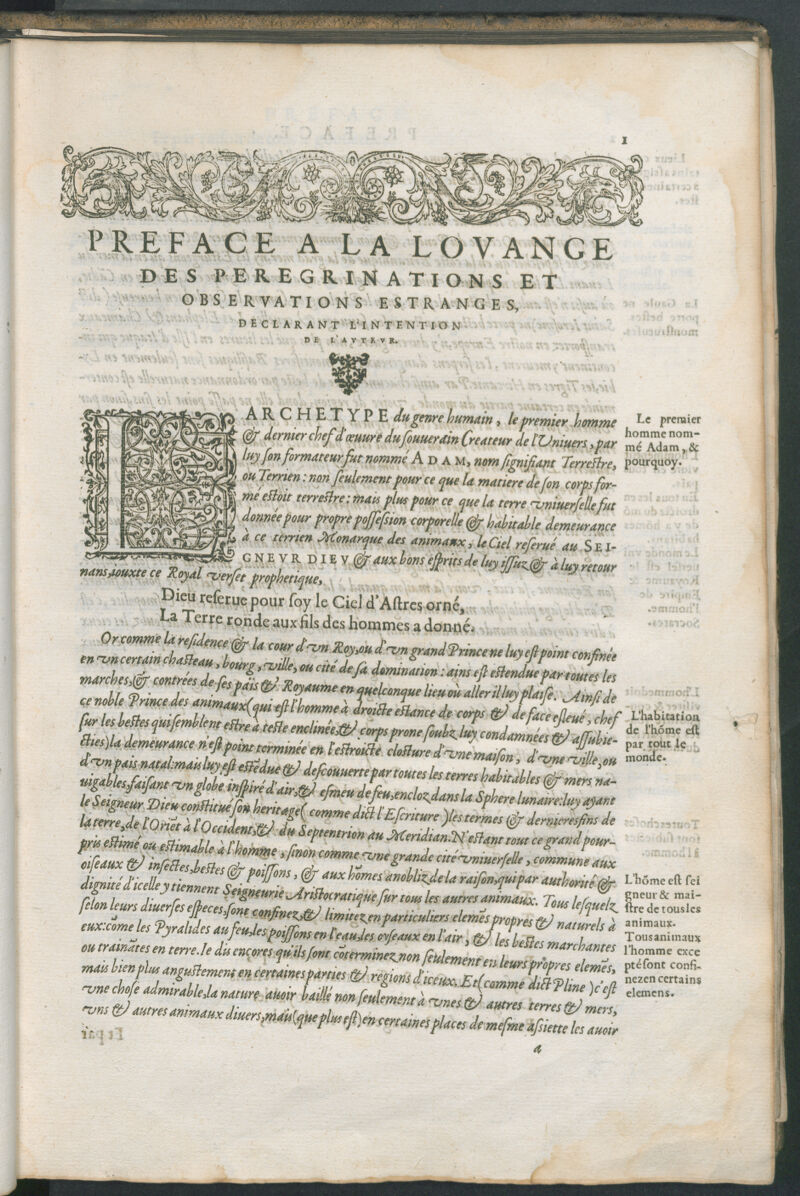 1
PREFACE A LA LOVANGE
DES PEREGRINATIONS ET
OBSERVATIONS ESTRANGES,
DECLARANT L'INTENTION
DE L'AVTEVR.
L'ARCHETYPE du genre humain, le premier homme
& dernier chef d'œuure du souuerain Createur de l'Vniuers, par
luy son formateur fut nommé ADAM, nom signifiant Terrestre,
ou Terrien: non seulement pour ce que la matiere de son corps for-
mé estoit terrestre: mais plus pour ce que la terre vniuerselle fut
donnée pour propre possession corporelle & habitable demeurance
à ce terrien Monarque des animaux, le Ciel reserué au SEI-
GNEVR DIEV & aux bons esprits de luy issuz & à luy retour
nans, iouxte ce Royal verset prophetique,
Dieu reserue pour soy le Ciel d'Astres orné,
La Terre ronde aux fils des hommes a donné.
Or comme la residence & la cour d'vn Roy, ou d'vn grand Prince ne luy est point confinée
en vn certain chasteau, bourg, ville, ou cité de sa domination: ains est estendue par toutes les
marches, & contrées de ses païs & Royaume en quelconque lieu ou aller il luy plaise. Ainsi de
ce noble Prince des animaux (qui est l'homme à droicte estance de corps & de face esleué, chef
sur les bestes qui semblent estre à teste enclinée, & corps prone soubz luy condamnées & assubie-
cties) la demeurance n'est point terminée en l'estroicte closture d'vne maison, d'vne ville, ou
d'vn païs natal: mais luy est estēdue & descouuerte par toutes les terres habitables & mers na-
uigables, faisant vn globe inspiré d'air, & esmeu de feu, encloz dans la Sphere lunaire: luy ayant
le Seigneur Dieu constitué son heritage (comme dict l'Escriture) les termes & dernieres fins de
la terre, de l'Oriēt à l'Occident, & du Septentrion au Meridian. N'estant tout ce grand pour-
pris estimé ou estimable à l'homme, sinon comme vne grande cité vniuerselle, commune aux
oiseaux & insectes, bestes & poissons, & aux hōmes anobliz de la raison, qui par authorité &
dignité d'icelle y tiennent Seigneurie Aristocratique sur tous les autres animaux. Tous lesquelz
selon leurs diuerses especes, sont confinez, & limitez en particuliers elemēs propres & naturels à
eux: cōme les Pyralides au feu, les poissons en l'eau, les oyseaux en l'air, & les bestes marchantes
ou trainātes en terre. Ie dis encores qu'ils sont cōterminez non seulement en leurs propres elemēs,
mais bien plus angustement en certaines parties & regions d'iceux. Et (comme dict Pline) c'est
vne chose admirable, la nature auoir baillé non seulement à vnes & autres terres & mers,
vns & autres animaux diuers, mais (que plus est) en certaines places de mesme assiette les auoir
a
Le premier
homme nom-
mé Adam, &
pourquoy.
L'habitation
de l'hōme est
par tout le
monde.
L'hōme est sei
gneur & mai-
stre de tous les
animaux.
Tous animaux
l'homme exce
pté sont confi-
nez en certains
elemens.